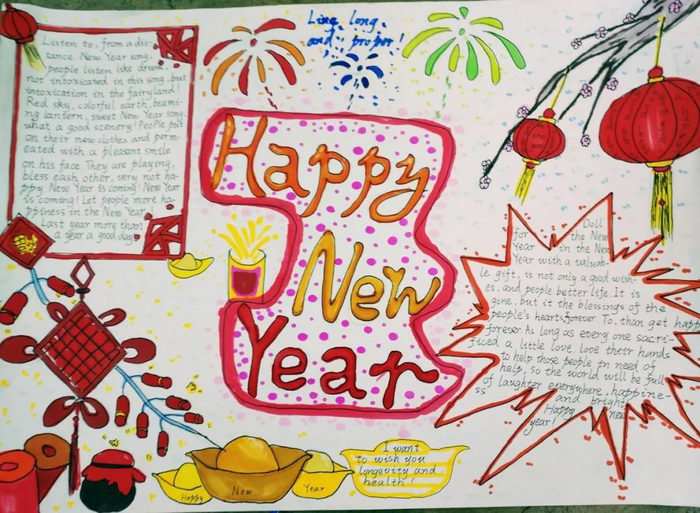 Listen to, from a dis-
tance New Year song,
people listen like drunk
not intoxicated in this song, but
intoxication in the fairyland!
Red sky, colorful earth, beami-
ng lantern, sweet New Year song,
what a good scenery! People put
on their new clothes and perm-
eated with a pleasant smile
on his face. They are playing,
bless each other, very not ha-
ppy. New Year is coming! New Year
is coming! Let people more ha-
ppiness in the New Year,
last year more than
a year a good day.
Ling long
and proper!
Happy
New
Year
Doll
for the New
Year in the New
Year with a valuab-
le gift, is not only a good wish-
es, and people better life. It is
gone, but it the blessings of the
people's hearts forever. To, than get happ
forever. As long as every one sacri-
ficed a little love love their hands
to help those people in need of
help, so the world will be full
of laughter everywhere, happine-
ss and bright
Happy new
year!
I want
to wish you
longevity and
health!
Happy
New
Year